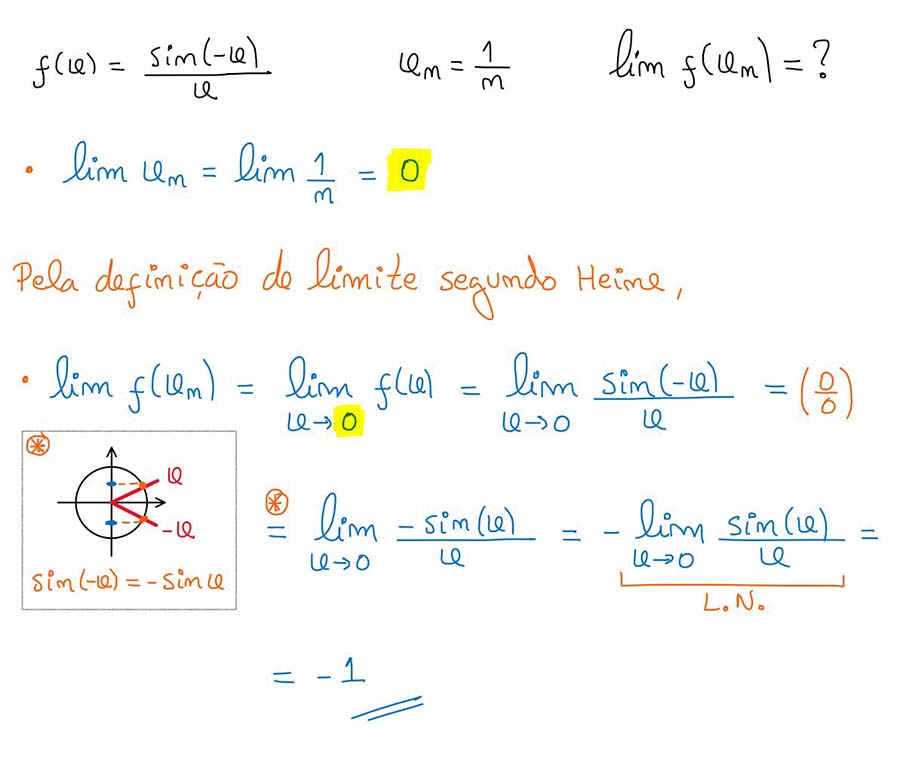 f(x) = sin(-x)/x    x_n = 1/n    lim f(x_n) = ?
• lim x_n = lim 1/n = 0
Pela definição de limite segundo Heine,
• lim f(x_n) = lim_{x→0} f(x) = lim_{x→0} sin(-x)/x = (0/0)
(*)
x
-x
sin(-x) = -sin x
(*) = lim_{x→0} -sin(x)/x = - lim_{x→0} sin(x)/x =
L.N.
= -1